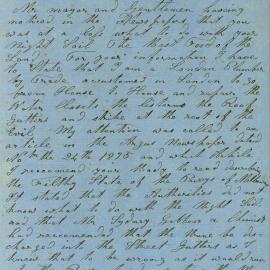 Mr mayor and Gentlemen having
noticed in the Newspapers, that you
was at a loss what to do with your
Night Soil The Best Food of the
Land, For your information I have
to State that I am a London Plumber
by Trade accustomed in London to go
from House to House and repair the
Water Closets the Cisterns the Roof
Gutters and strike at the root of the
Evil. My attention was called to an
article in the Argus Newspaper dated
the 24th and which Article
I recommend your ready to read
the Filthy State of the
It stated that the Authorities did not
know what to do with the Night Soil
and that Mr Sydney Gibbons a Chemist
had recommended that the Urine be dis-
charged into the Street Gutters as I
knew that to be wrong as it would run